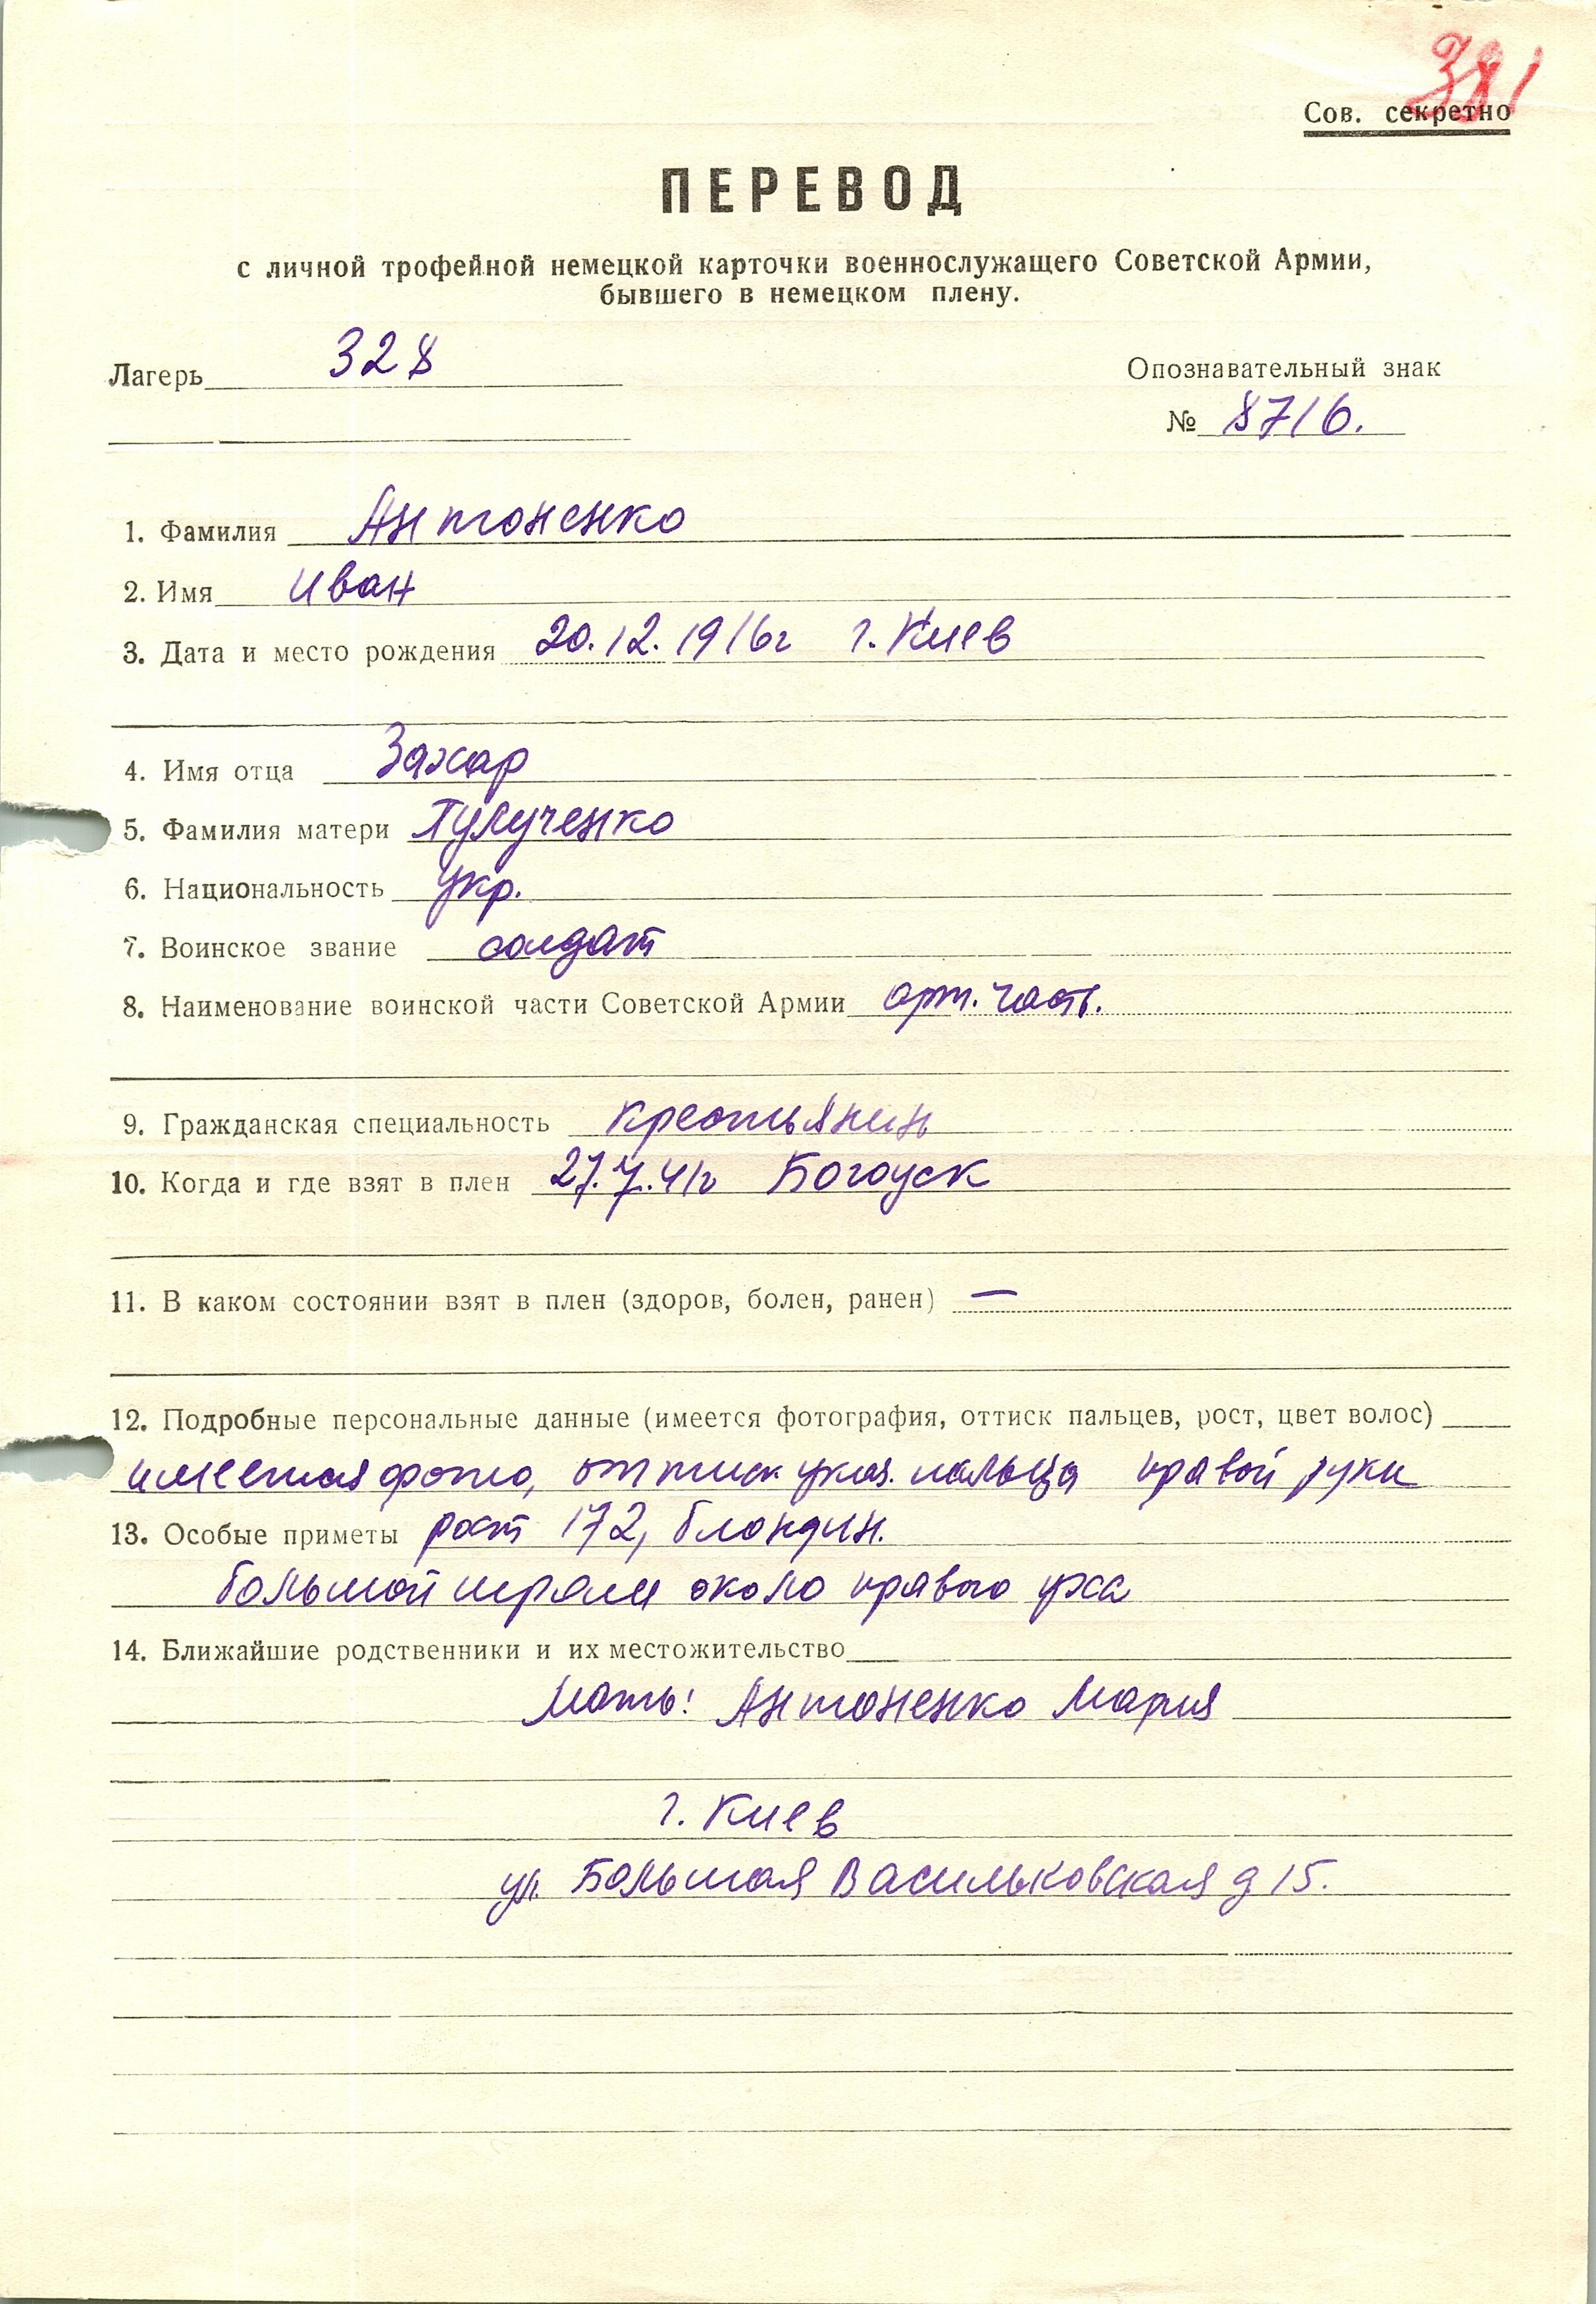 381
Сов. секретно
ПЕРЕВОД
с личной трофейной немецкой карточки военнослужащего Советской Армии,
бывшего в немецком плену.
Лагерь 328 Опознавательный знак
№ 8716.
1. Фамилия Антоненко
2. Имя Иван
3. Дата и место рождения 20.12.1916г г. Киев
4. Имя отца Захар
5. Фамилия матери
6. Национальность укр.
7. Воинское звание солдат
8. Наименование воинской части Советской Армии арт. часть.
9. Гражданская специальность крестьянин
10. Когда и где взят в плен 27.7.41г Богоуск
11. В каком состоянии взят в плен (здоров, болен, ранен) —
12. Подробные персональные данные (имеется фотография, оттиск пальцев, рост, цвет волос)
имеется фото, оттиск указ. пальца правой руки
13. Особые приметы рост 172, блондин.
большой шрам около правого уха
14. Ближайшие родственники и их местожительство
Мать: Антоненко Мария
г. Киев
ул. Большая Васильковская д 15.